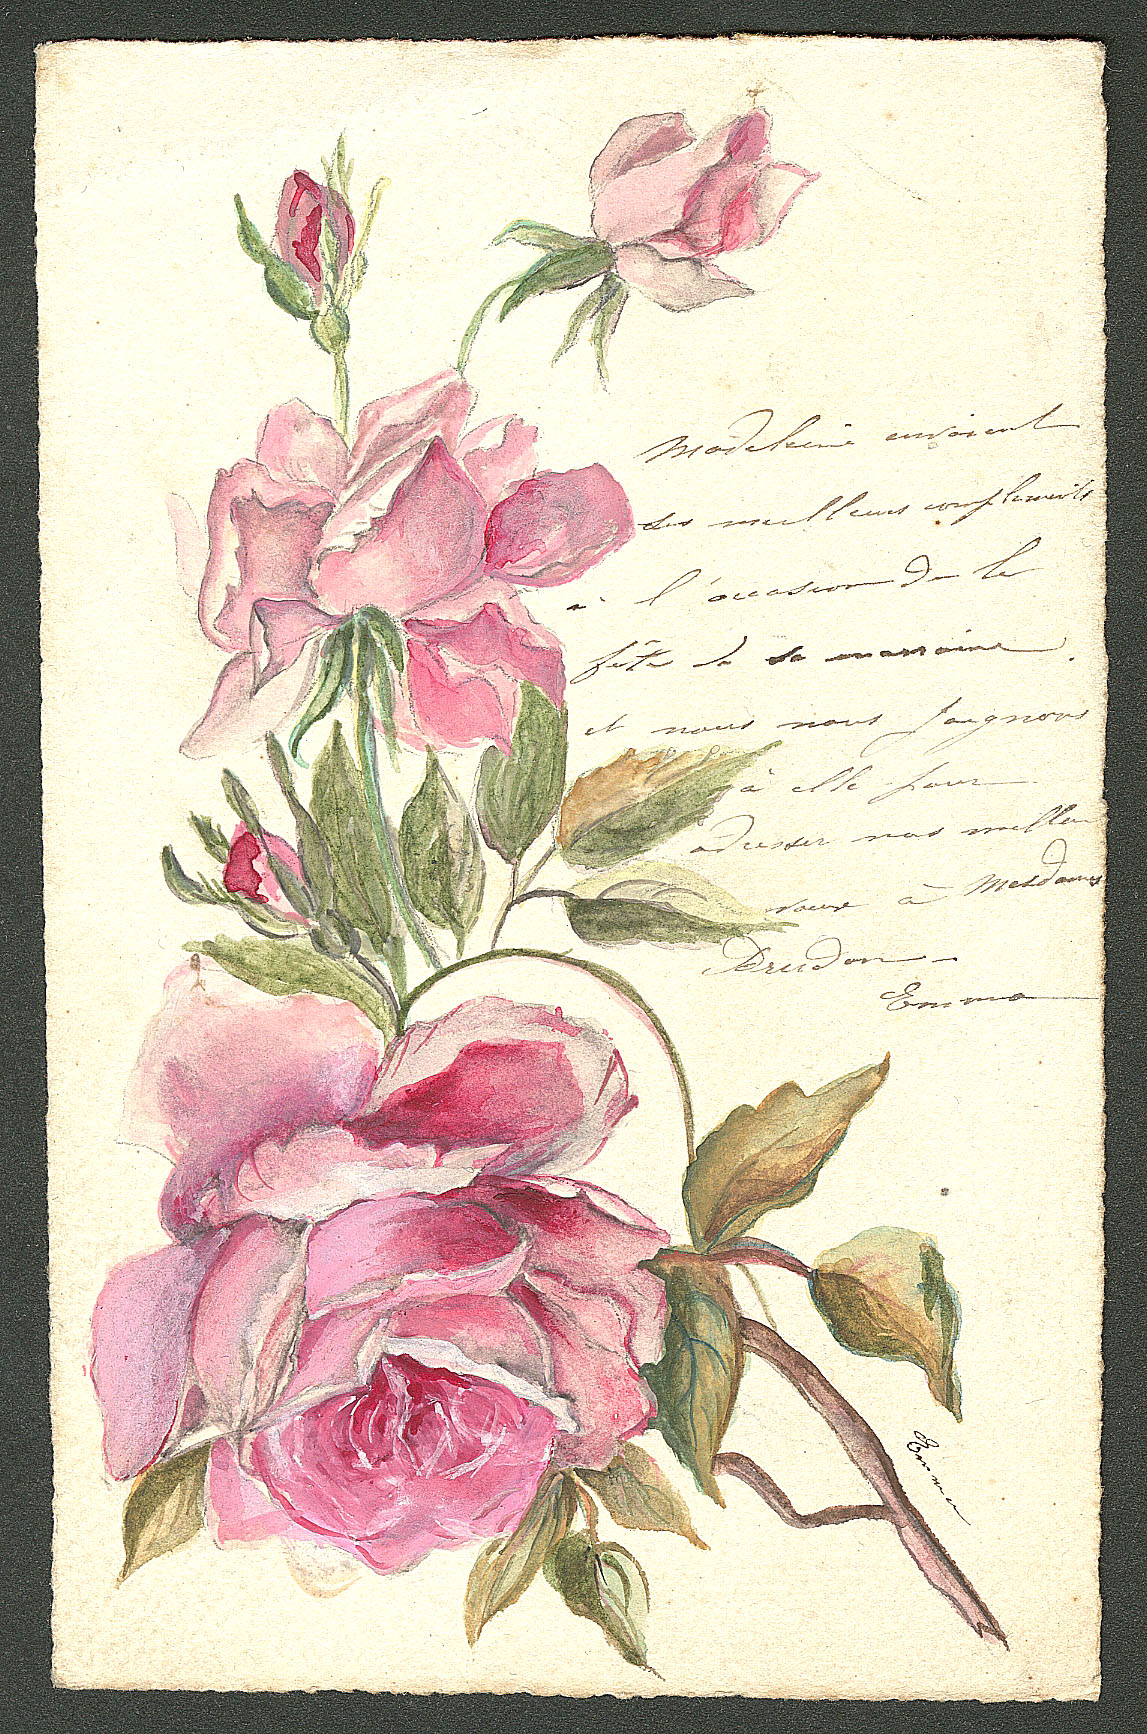 Madeleine envoient
ses meilleurs compliments
à l'occasion de la
fête de sa marraine.
et nous nous joignons
à elle pour
adresser nos meilleu
voeux à Mesdames
Drudon
Emma
Emma